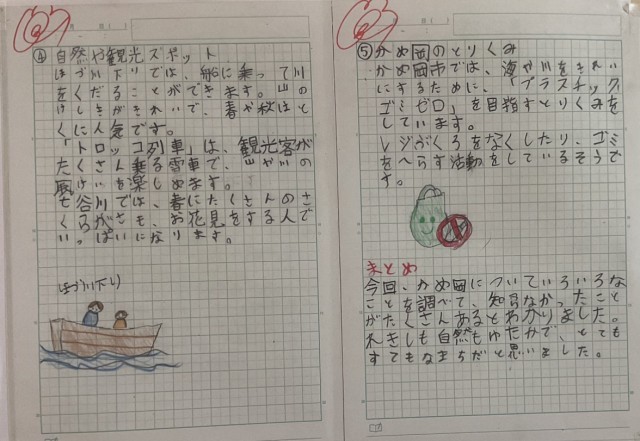 ④自然や観光スポット
ほづ川下りでは、船に乗って川
をくだることができます。山の
けしきがきれいで、春や秋はと
くに人気です。
「トロッコ列車」は、観光客が
たくさん乗る電車で、山や川の
風けいを楽しめます。
七谷川では、春にたくさんのさ
くらがさき、お花見をする人で
いっぱいになります。
ほづ川下り
⑤かめ岡のとりくみ
かめ岡市では、海や川をきれい
にするために、「プラスチック
ゴミゼロ」を目指すとりくみを
しています。
レジぶくろをなくしたり、ゴミ
をへらす活動をしているそうで
す。
まとめ
今回、かめ岡についていろいろな
ことを調べて、知らなかったこと
がたくさんあるとわかりました。
れきしも自然もゆたかで、とても
すてきなまちだと思いました。